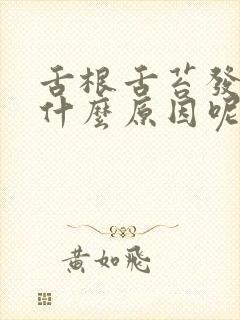 舌根舌苔發
什麼原因呢
黃如飛